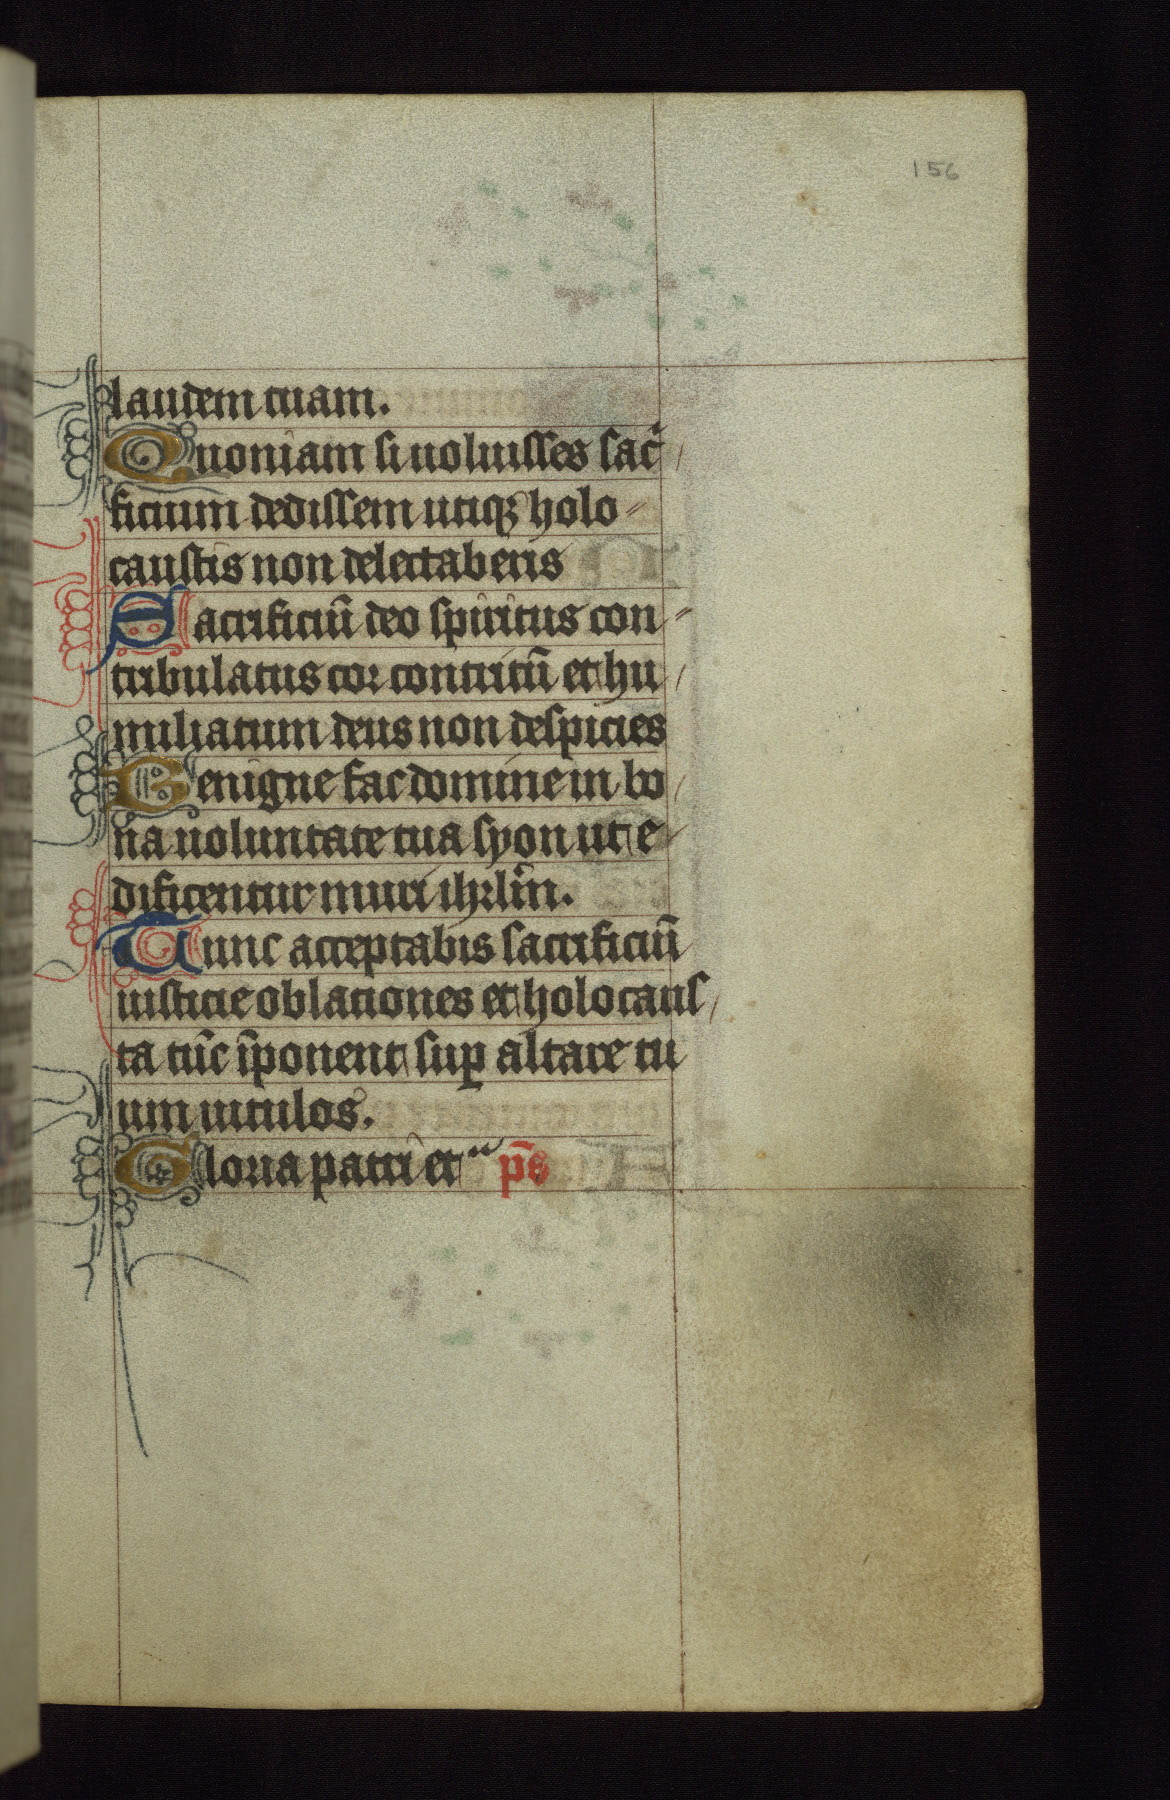 156
laudem tuam.
Quoniam si uoluisses sac̄
ficium dedissem utiqꝫ holo
caustis non delectaberis
Sacrificiū deo spiritus con
tribulatus cor contritū et hu
miliatum deus non despicies
Benigne fac domine in bo
na uoluntate tua syon ut e
dificentur muri ihrlm̄.
Tunc acceptabis sacrificiū
iusticie oblationes et holocaus
ta tūc īponent suꝑ altare tu
um uitulos.
Gloria patri et p̄s